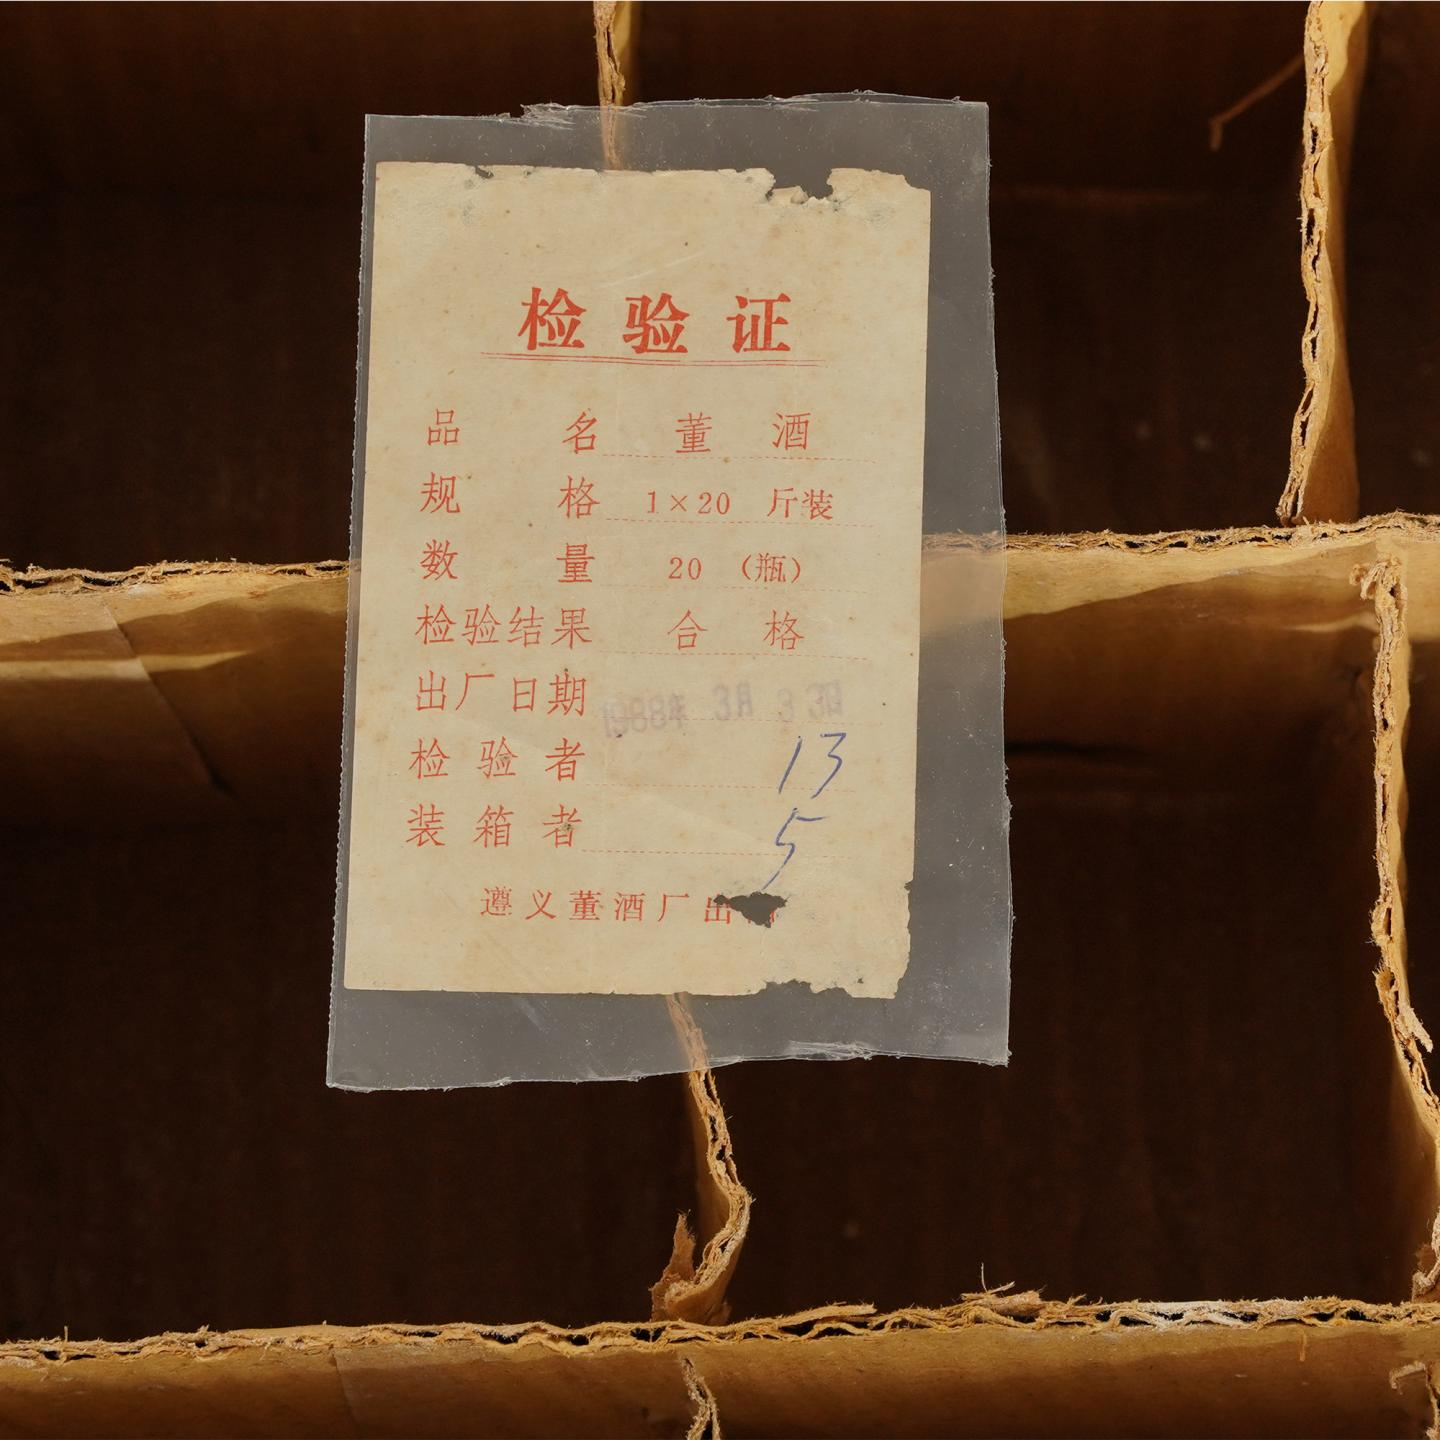 检验证
品名 董酒
规格 1×20 斤装
数量 20 (瓶)
检验结果 合格
出厂日期 1988年 3月
检验者 13
装箱者 5
遵义董酒厂出